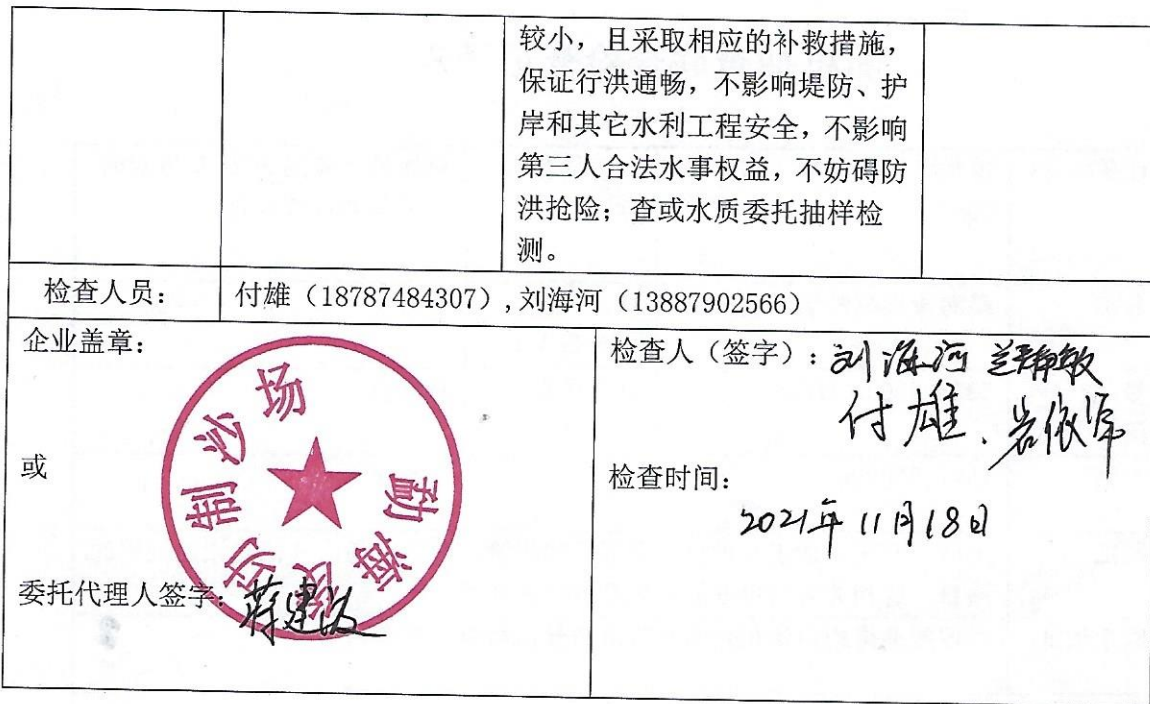 较小，且采取相应的补救措施，
保证行洪通畅，不影响堤防、护
岸和其它水利工程安全，不影响
第三人合法水事权益，不妨碍防
洪抢险；查或水质委托抽样检
测。
检查人员： 付雄（18787484307）,刘海河（13887902566）
企业盖章：
勐海 制沙场
或
委托代理人签字：
检查人（签字）：刘海河
付雄、
检查时间：
2021年11月18日